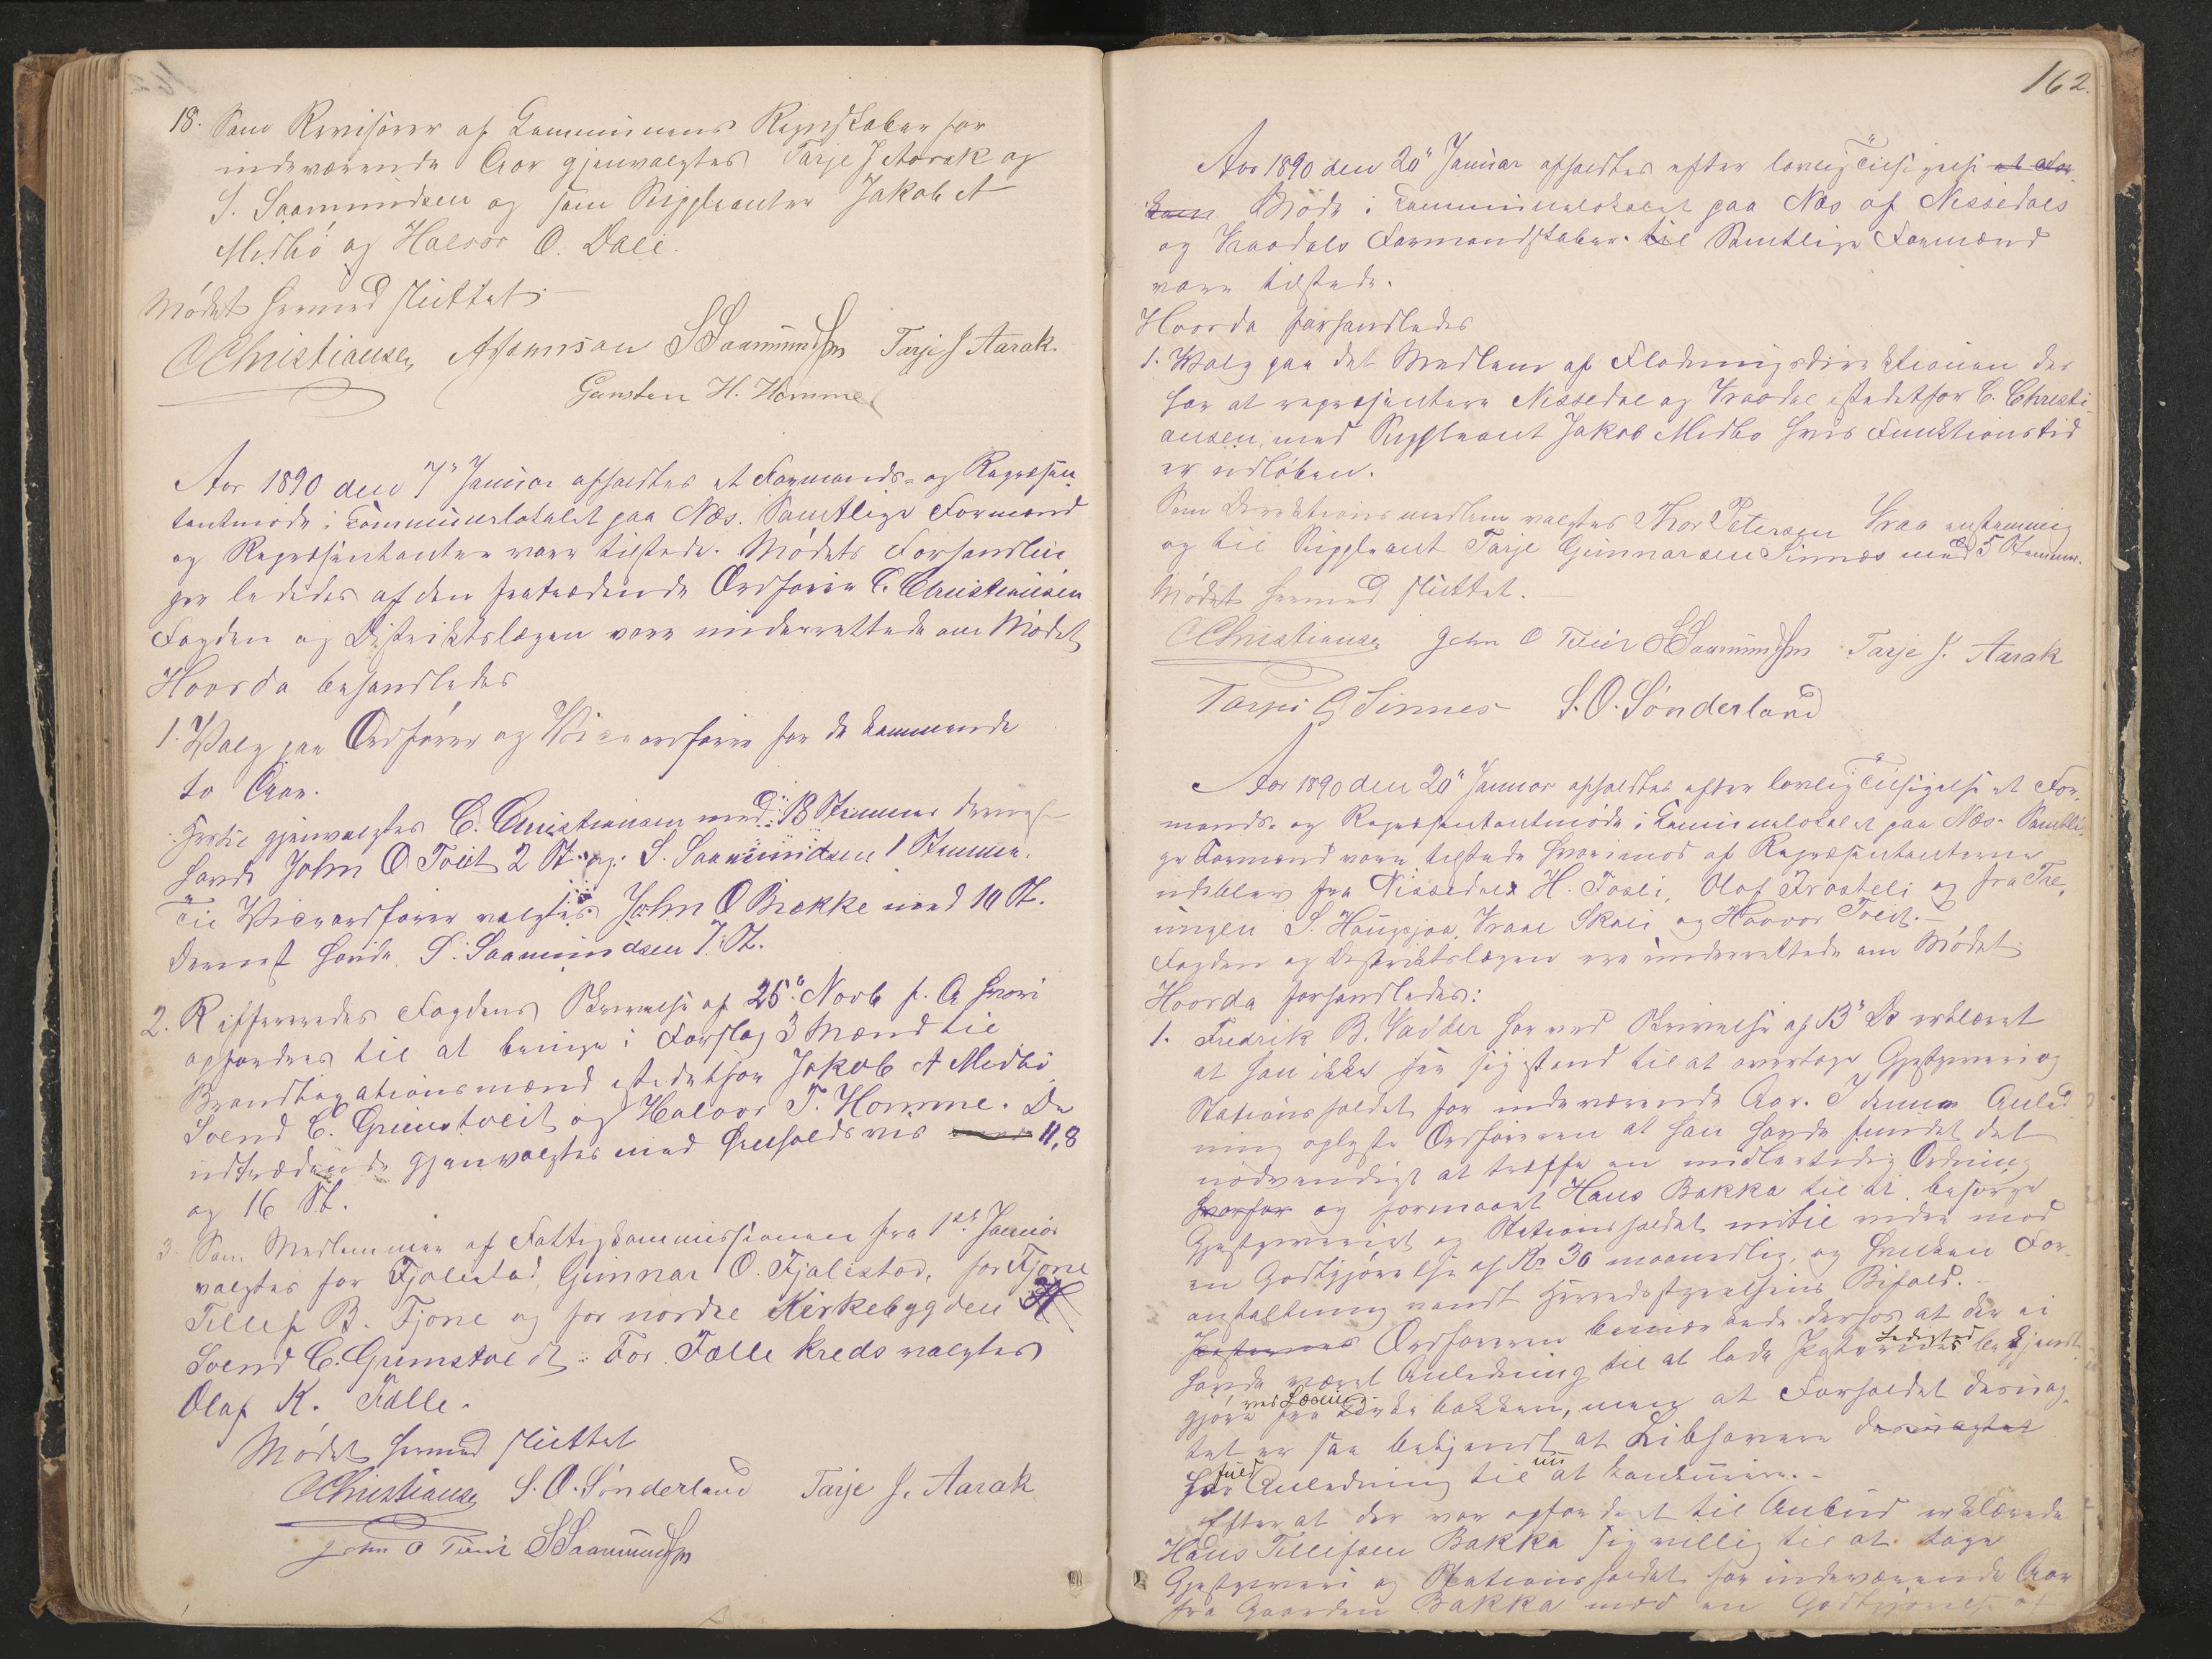 18. Som Revisorer af Kommunens Regnskaber for
indeværende Aar gjenvalgtes Tarje J Aarak og
S. Saamundsen og som Suppleanter Jakob A
Midbö og Halvor O. Dale.
Mödet hermed sluttet.
CChristiansen Asmunsen SSaamundsen Tarje J Aarak.
Gunsten H. Homme
Aar 1890 den 7" Januar afholdtes et Formands- og Repræsen-
tantmöde i Kommunelokalet paa Næs. Samtlige Formænd
og Repræsentanter vare tilstede. Mödets Forhandlin
ger lededes af den fratrædende Ordförer C. Christiansen
Fogden og Distriktslægen vare underrettede om Mödet
Hvorda behandledes
1. Valg paa Ordförer og Viceordförer for de kommende
to Aar.
Hertil gjenvalgtes C. Christiansen med 18 Stemmer dernæst
havde John O Tveit 2 St. og S. Saamundsen 1 Stemme.
Til Viceordförer valgtes John O Brække med 10 St.
Dernæst havde S. Saamundsen 7 St.
2. Refereredes Fogdens Skrivelse af 25" Novb f. A hvori
opfordres til at bringe i Forslag 3 Mænd til
Brandtaxationsmænd istedetfor Jakob A Midbö
Svend C. Grimstveit og Halvor T. Homme. De
udtrædende gjenvalgtes med henholdsvis 11, 8
og 16 St.
3. Som Medlemmer af Fattigkommissionen fra 1ste Januar
valgtes for Fjalestad, Gunnar O. Fjalestad, for Fjone
Tellef B. Fjone og for nordre Kirkebygden H
Svend C. Grimstvedt. For Fælle kreds valgtes
Olaf K. Fælle.
Mödet hermed sluttet
CChristiansen S. O. Sönderland Tarje J. Aarak
John O Tveit SSaamundsen
162.
Aar 1890 den 20" Januar afholdtes efter lovlig Tilsigelse et For
Möde i Kommunelokalet paa Næs af Nissedals
og Vraadals Formandskaber. til Samtlige Formænd
vare tilstede.
Hvorda forhandledes
1. Valg paa det Medlem af Flödningsdirektionen der
har at repræsentere Nissedal og Vraadal istedetfor C. Christi-
ansen, med Suppleant Jakob Midbo hvis Funktionstid
er udlöben.
Som Direktionsmedlem valgtes Thor Petersen Vraa enstemmig
og til Suppleant Tarje Gunnarsen Sinnes med 5 Stemmer.
Mödet hermed sluttet.
CChristiansen John O Tveit SSaamundsen Tarje J. Aarak
Tarje G Sinnes S. O. Sönderland
Aar 1890 den 20" Januar afholdtes efter lovlig Tilsigelse et For-
mands- og Repræsentantmöde i Kommunelokalet paa Næs. Samtli-
ge Formænd vare tilstede hvorimod af Repræsentanterne
udeblev fra Nissedal H. Tosli, Olaf Frosteli og fra Tre-
ungen S. Haugsjaa, Vraal Skoli og Havor Tveit.
Fogden og Distriktslægen ere underrettede om Mödet
Hvorda forhandledes:
1. Fredrik B. Vadder har ved Skrivelse af 13" Ds erklæret
at han ikke ser sig istand til at overtage Gjæstgiveri og
Stationsholdet for indeværende Aar. I denne Anled-
ning oplyste Ordföreren at han havde fundet det
nödvendigt at træffe en midlertidig Ordning
hvorfor og formaaet Hans Bakka til at besörge
Gjæstgiveriet og Stationsholdet indtil videre mod
en Godtgjörelse af Kr 30 maanedlig, og hvilken For-
anstaltning vandt Herredsstyrelsens Bifald.
Ordföreren bemærkede derhos at der ei
havde været Anledning til at lade Posternes Ledighed bekjendt-
gjöre ved Læsning fra Kirkebakken, men at Forholdet desuag-
tet er saa bekjendt at Libhavere desuagtet
har fuld Anledning til nu at konkurrere.
Efter at der var opfordret til Anbud erklærede
Hans Tellefsen Bakka sig villig til at tage
Gjæstgiveri og Stationsholdet for indeværende Aar
fra Gaarden Bakka mod en Godtgjörelse af